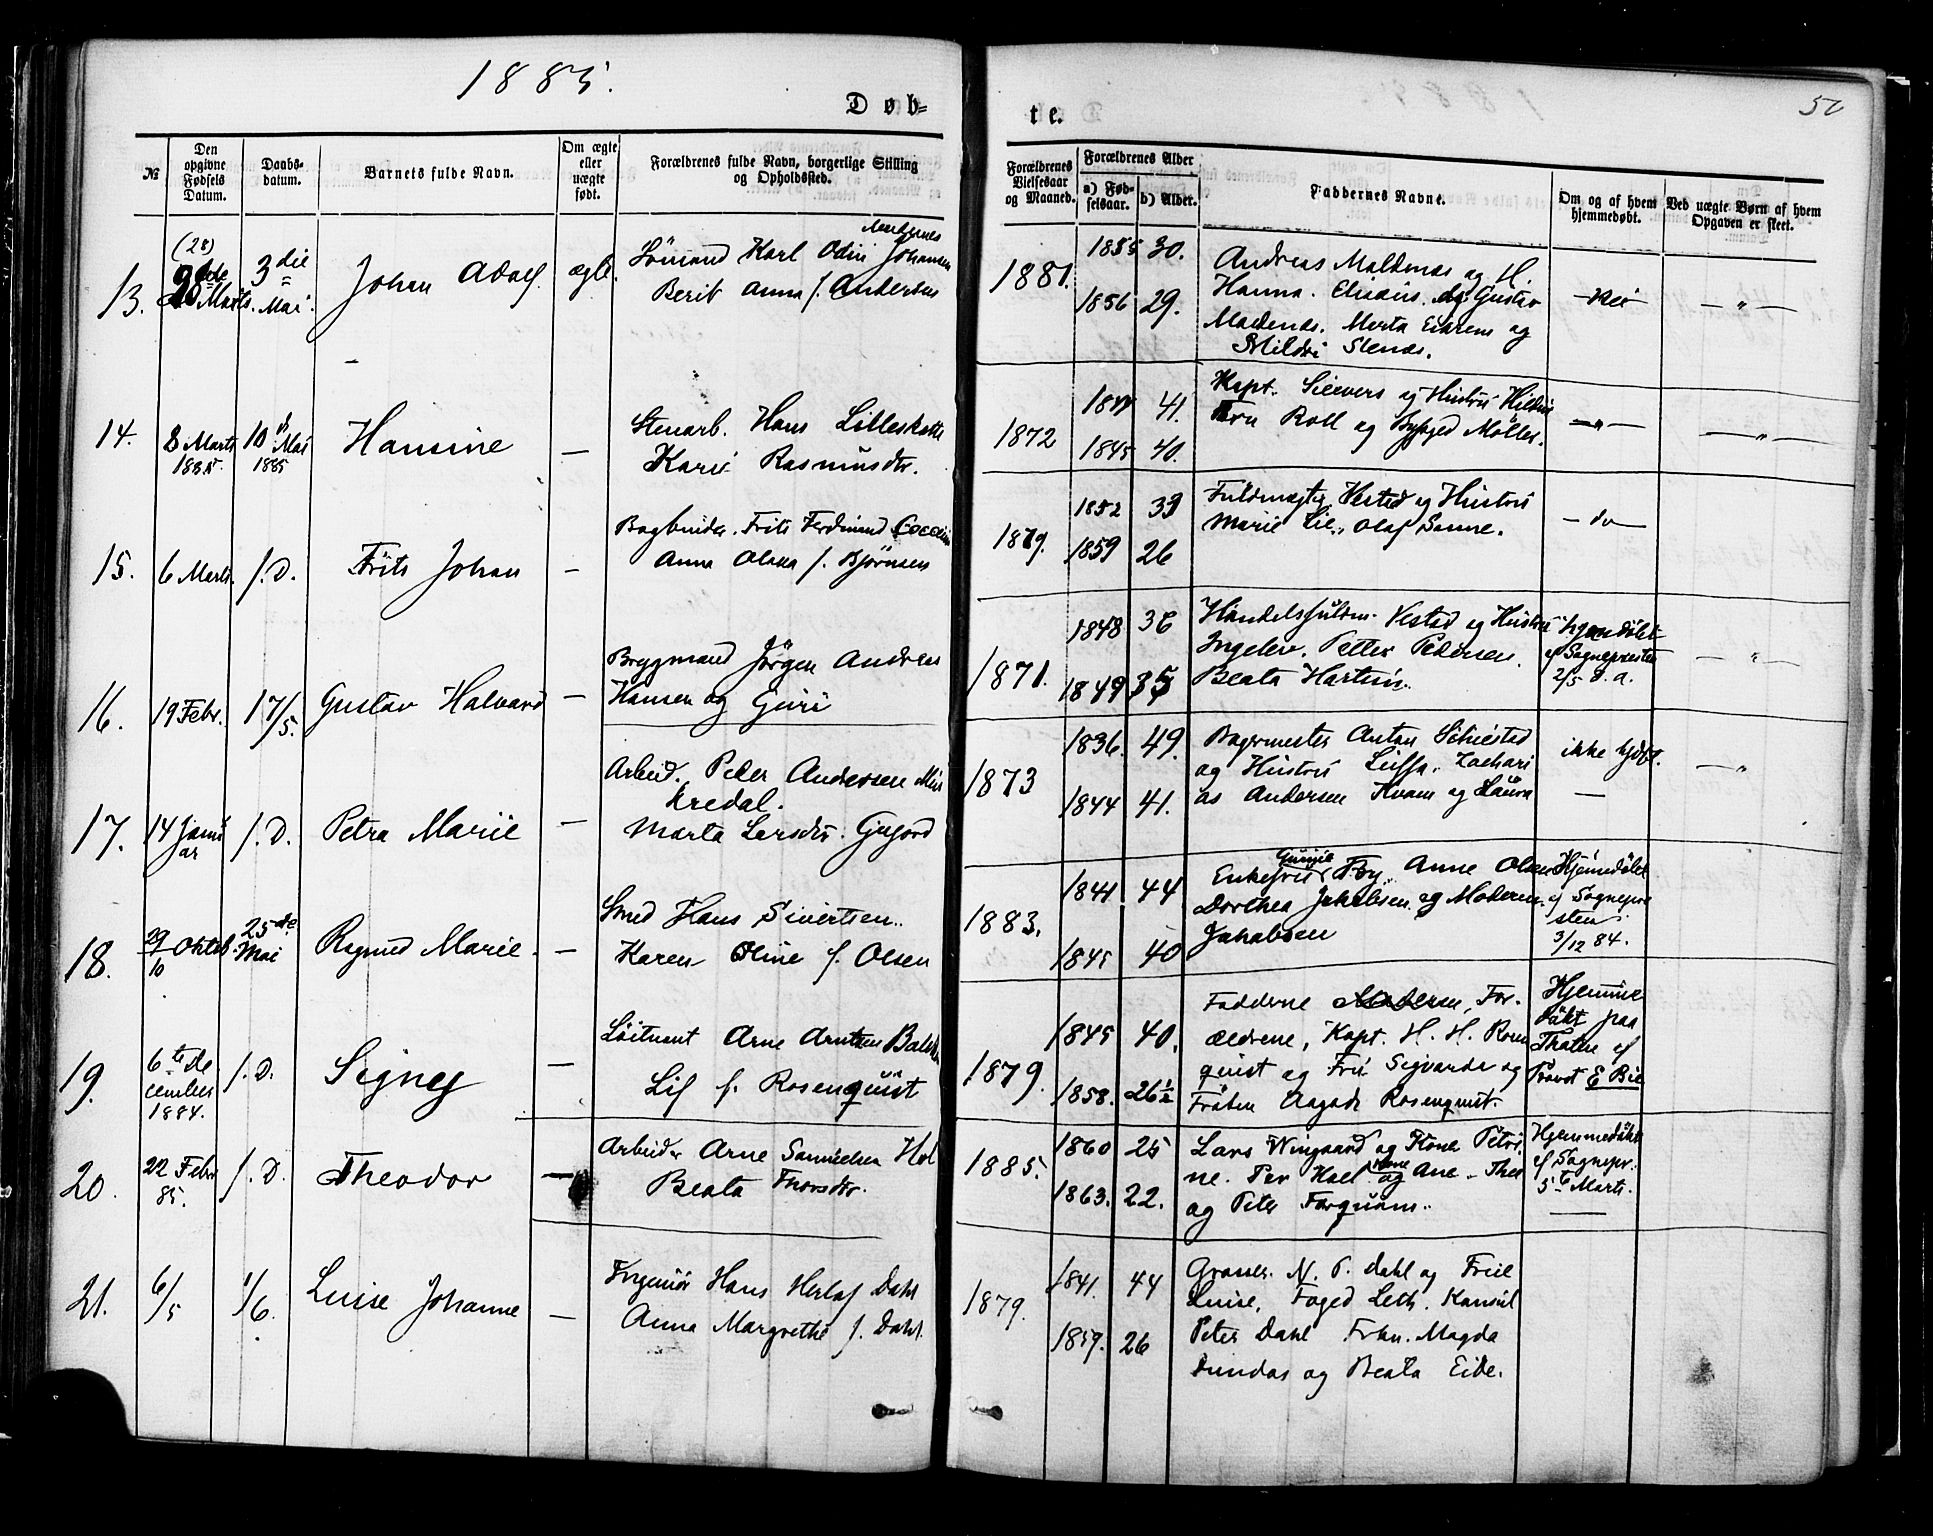 1885.
Døb-
te.
50
№
Den opgivne Fødsels Datum.
Daabs-datum.
Barnets fulde Navn.
Om ægte eller uægte født.
Forældrenes fulde Navn, borgerlige Stilling og Opholdssted.
Forældrenes Vielsesaar og Maaned.
Forældrenes Alder
a) Fød-selsaar.
b) Alder.
Faddernes Navne.
Om og af hvem hjemmedøbt.
Ved uægte Børn af hvem Opgaven er skeet.
13.
(28)
Marts.
3die Mai.
Johan Adolf
ægte.
Sømand Karl Odin Johansen
Berit Anna f. Andersen
1881.
1855 30.
1856 29.
Andreas Maldenæs og H.
Hanna. og Gustav
Maldenæs. Marta Eikrem og
Stenæs.
Nei
— " —
14.
8 Marts 1885
10 Mai 1885
Hansine
—
Stenarb. Hans Lilleskatte
Kari Rasmusdtr.
1872
1844 41.
1845 40.
Kapt. Sievers og Hustru
Fru Roll og Møller.
— " —
— " —
15.
6 Marts.
s. D.
Frits Johan
—
Bogbinder. Frits Ferdinand
Anna Olava f. Bjørnsen
1879.
1852 33
1859 26
Fuldmægtig Vestad og Hustru
Marie Lie., Olaf Sanne.
— do —
16.
19 Febr.
17/5.
Gustav Halvard
—
Bryggmand Jørgen Andreas
Hansen og Guri
1871.
1848 36
1849 35
Handelsfuldm. Vestad og Hustru
Ingeleiv. Petter Pedersen.
Beata Hartvig.
hjemdøbt
af Sognepresten
2/5 d. a.
— " —
17.
14 Janu
ar
s. D.
Petra Marie
—
Arbeid. Peter Andersen Mis
fredal.
Marta Larsdtr. Gujord
1873
1836. 49.
1844 41.
Bagermester Anton Schiested
og Hustru Luffa. Zachari
as Andersen Kvam og Laura
ikke hjdbt.
—
— " —
18.
29/10 Oktob.
25de Mai
Ragnud Marie.
—
Smed Hans Sivertsen.
Karen Oline f. Olsen
1883.
1841 44
1845 40
Enkefru Gunnie Fry. Anne Olsen
Dorthea Jakobsen. og Moderen.
Jakobsen
Hjemmedøbt
af Sognepre
sten
3/12 84.
19.
6te De
cember
1884.
s. D.
Signy
—
Løitnant Arne Arntsen
Lif f. Rosenquist
1879.
1845 40.
1858. 26½
Fadderne Moderen, For-
ældrene, Kapt. H. H. Rosen
quist og Fru Sigvarda og
Frøken Aagada Rosenquist.
Hjemme
døbt paa
Thoten af
Provst E Bie
20.
22 Febr
85.
s. D.
Theodor
—
Arbeider Arne Samuelsen Hol
Beata Thorsdtr.
1885.
1860 25
1863. 22.
Lars Wingaard og Kone Petri
ne. Per Hoel og Kone Ane. Thea
og Peter Farquam.
Hjemmedøbt
af Sognepr.
5te Marts.
21.
6/5
1/6.
Luise Johanne
—
Ingeniør Hans Herlof Dahl
Anna Margrethe f. Dahl.
1879.
1841. 44
1859. 26
Grosser. N. P. Dahl og Frue
Luise, Foged Leth. Konsul
Peter Dahl Frkn. Magda
Dundas og Beata Eide.